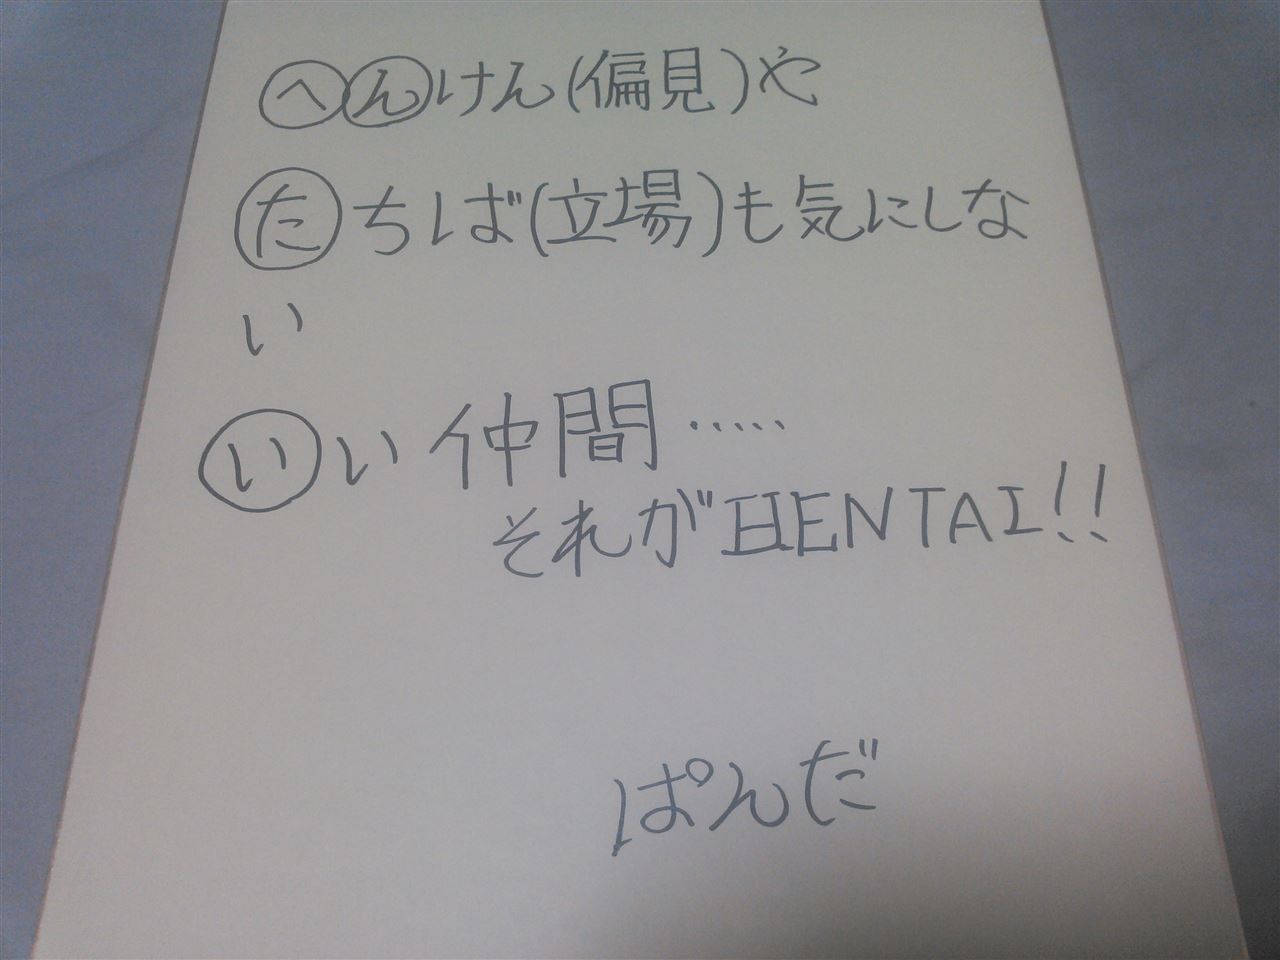 へんけん(偏見)や
たちば(立場)も気にしな
い
いい仲間……
それがHENTAI!!
ぱんだ